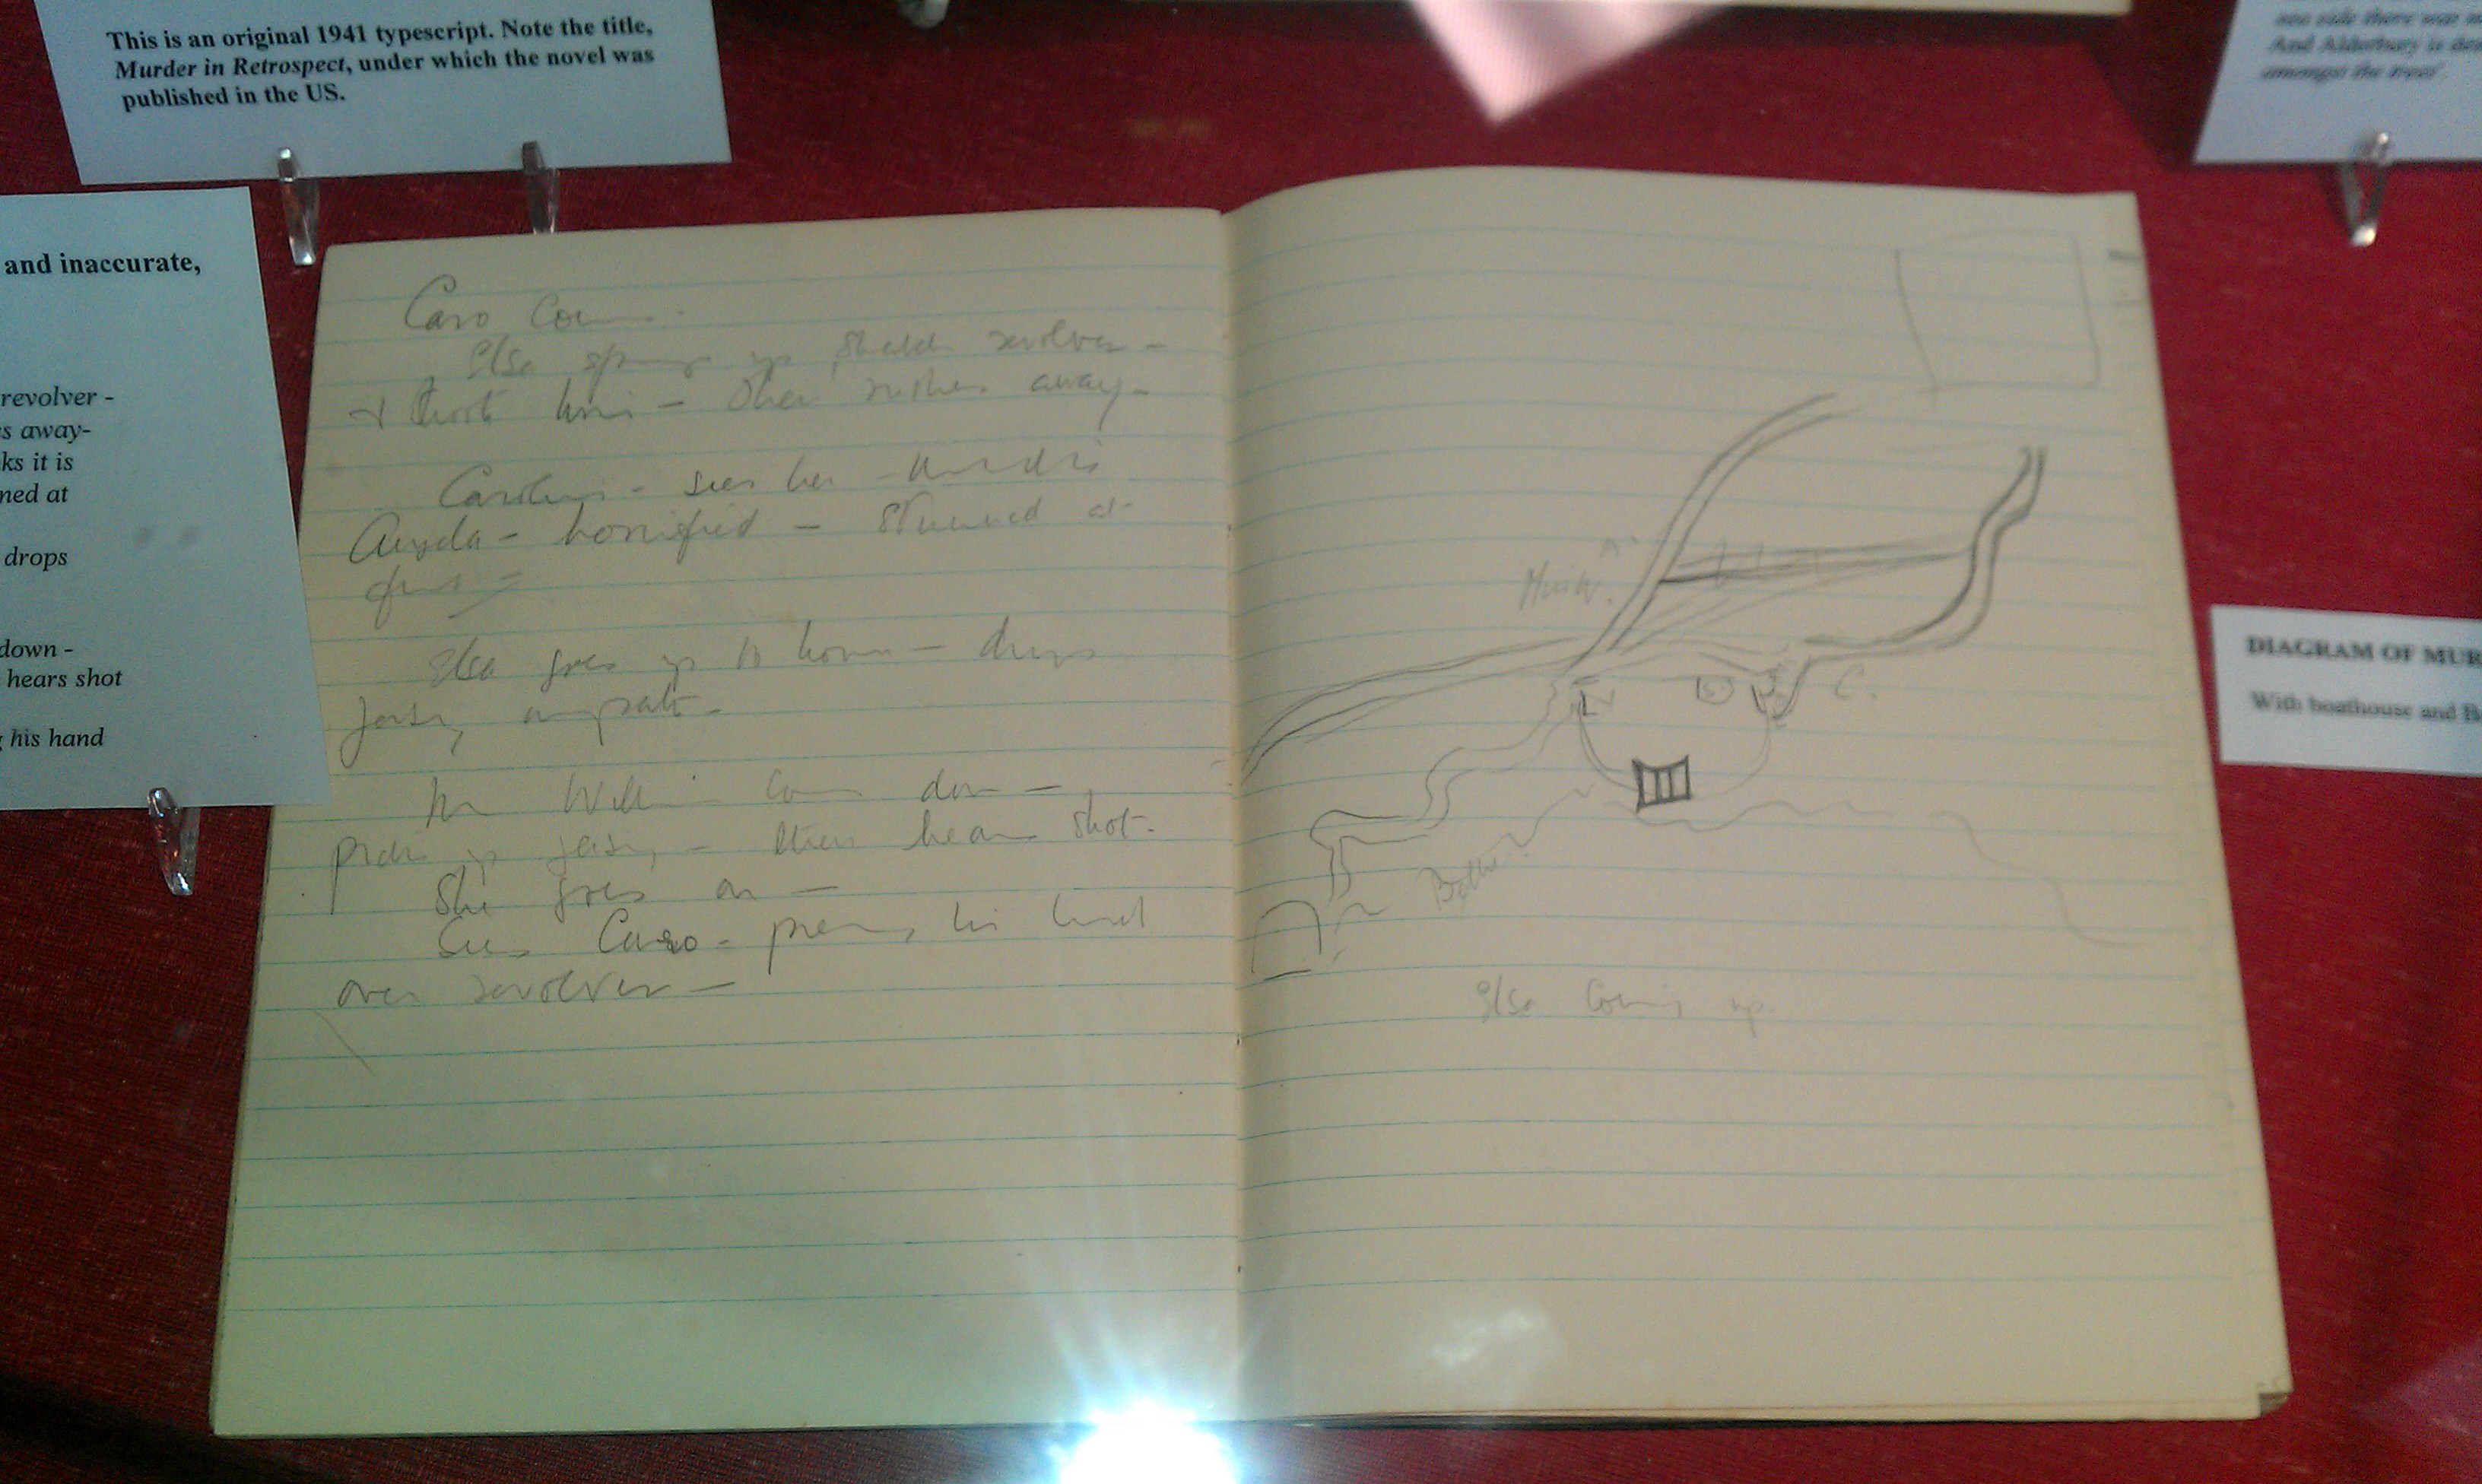 This is an original 1941 typescript. Note the title,
Murder in Retrospect, under which the novel was
published in the US.
one side there was
And Alderbury is
amongst the trees'.
and inaccurate,
revolver -
away-
it is
at
drops
down -
hears shot
his hand
Caro
Elsa springs up revolver -
+ shoots him - then rushes away -
Caroline - sees her - thinks it is
Angela - horrified - stunned at
first -
Elsa goes up to house - drops
jersey on path -
Mr Williams comes down -
picks up jersey - then hears shot -
She goes on -
Sees Caro - pressing his hand
over revolver -
C.
Elsa coming up.
DIAGRAM OF
With boathouse and